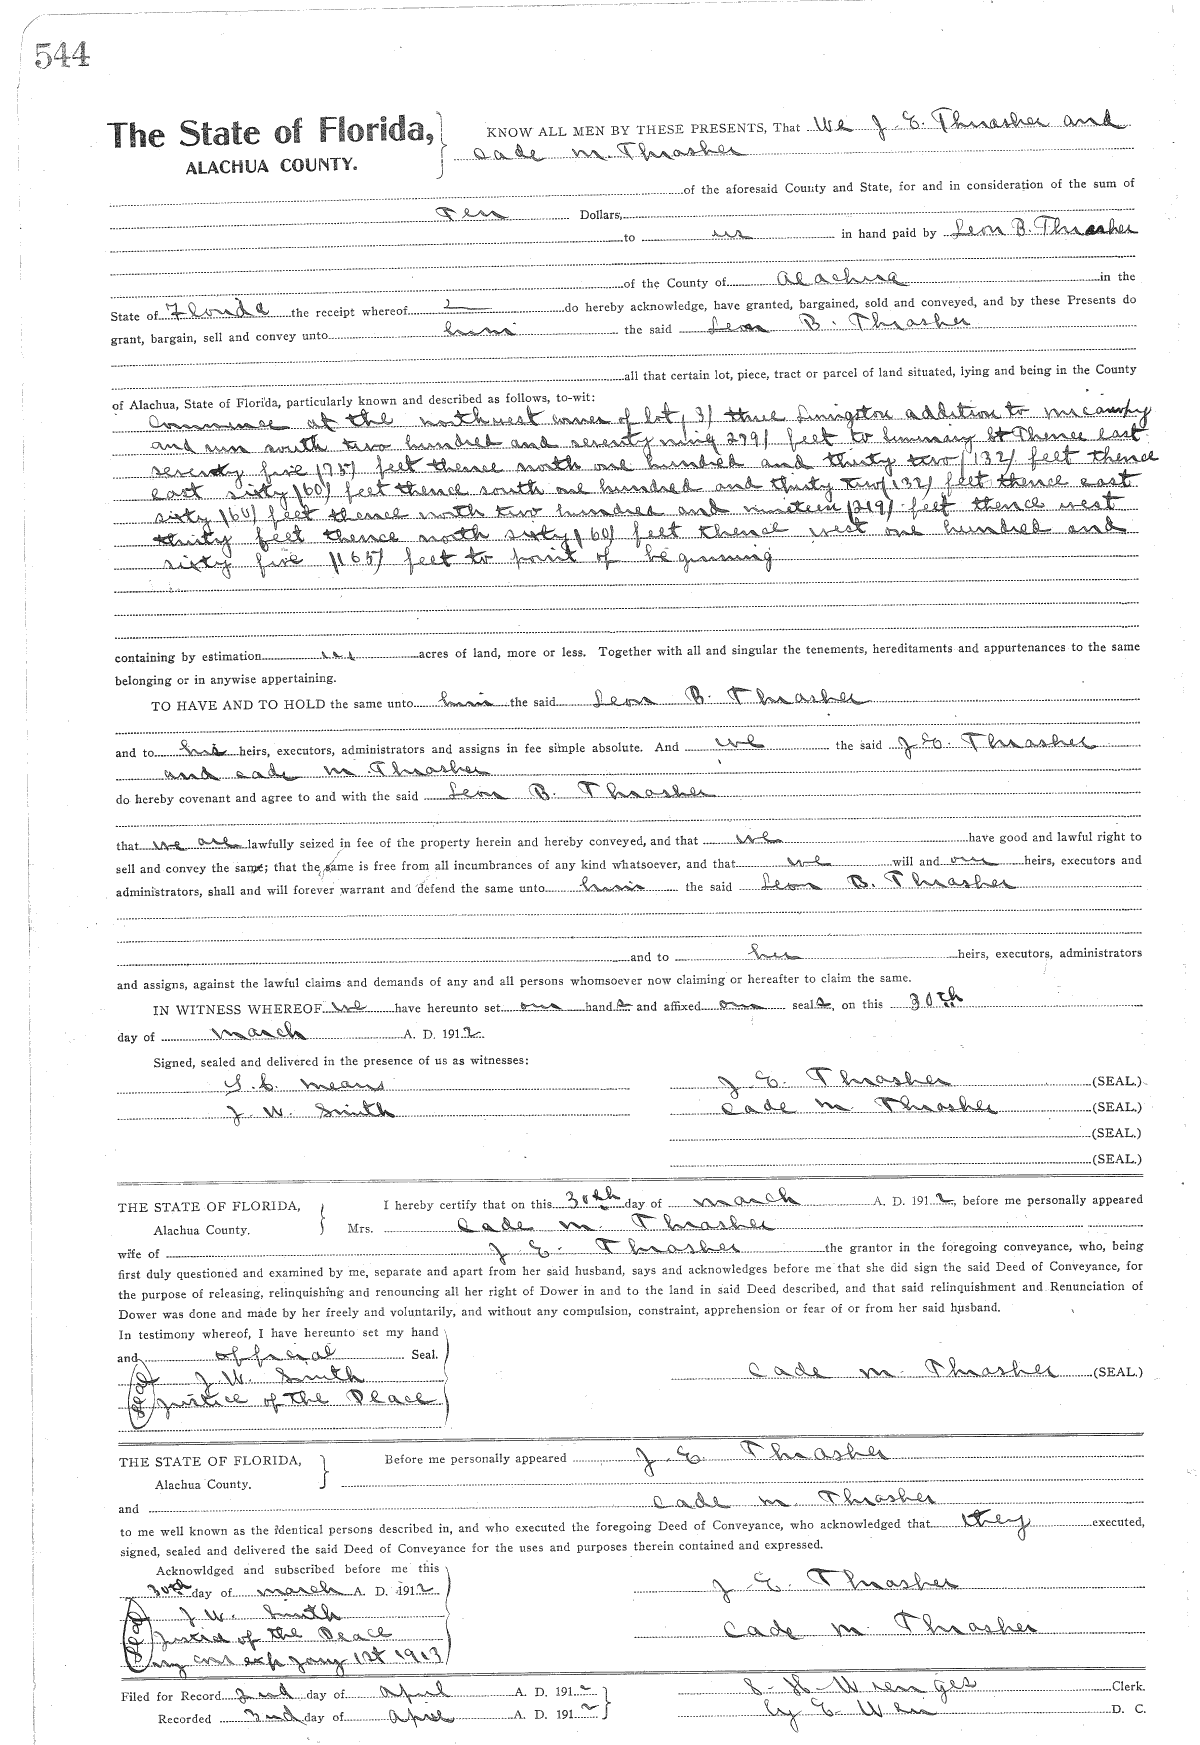 544
The State of Florida,
ALACHUA COUNTY.
KNOW ALL MEN BY THESE PRESENTS, That We J. E. Thrasher and
Cade M. Thrasher
of the aforesaid County and State, for and in consideration of the sum of
Ten Dollars,
to us in hand paid by Leon B. Thrasher
of the County of Alachua in the
State of Florida the receipt whereof do hereby acknowledge, have granted, bargained, sold and conveyed, and by these Presents do
grant, bargain, sell and convey unto him the said Leon B. Thrasher
all that certain lot, piece, tract or parcel of land situated, lying and being in the County
of Alachua, State of Florida, particularly known and described as follows, to-wit:
Commence at the northwest corner of lot (3) three Livingston addition to Micanopy
and run south two hundred and seventy nine 279) feet to Seminary St Thence east
seventy five (75) feet thence north one hundred and thirty two (132) feet thence
east sixty (60) feet thence south one hundred and thirty two (132) feet thence east
sixty (60) feet thence north two hundred and nineteen (219) feet thence west
thirty feet thence north sixty (60) feet thence west one hundred and
sixty five (165) feet to point of beginning
containing by estimation acres of land, more or less. Together with all and singular the tenements, hereditaments and appurtenances to the same
belonging or in anywise appertaining.
TO HAVE AND TO HOLD the same unto him the said Leon B. Thrasher
and to his heirs, executors, administrators and assigns in fee simple absolute. And we the said J. E. Thrasher
and Cade M. Thrasher
do hereby covenant and agree to and with the said Leon B. Thrasher
that we are lawfully seized in fee of the property herein and hereby conveyed, and that we have good and lawful right to
sell and convey the same; that the same is free from all incumbrances of any kind whatsoever, and that we will and our heirs, executors and
administrators, shall and will forever warrant and defend the same unto him the said Leon B. Thrasher
and to his heirs, executors, administrators
and assigns, against the lawful claims and demands of any and all persons whomsoever now claiming or hereafter to claim the same.
IN WITNESS WHEREOF we have hereunto set our hands and affixed our seals, on this 30th
day of March A. D. 1912.
Signed, sealed and delivered in the presence of us as witnesses:
S. C. Means J. E. Thrasher (SEAL.)
J. W. Smith Cade M Thrasher (SEAL.)
(SEAL.)
(SEAL.)
THE STATE OF FLORIDA,
Alachua County.
I hereby certify that on this 30th day of March A. D. 1912, before me personally appeared
Mrs. Cade M. Thrasher
wife of J. E. Thrasher the grantor in the foregoing conveyance, who, being
first duly questioned and examined by me, separate and apart from her said husband, says and acknowledges before me that she did sign the said Deed of Conveyance, for
the purpose of releasing, relinquishing and renouncing all her right of Dower in and to the land in said Deed described, and that said relinquishment and Renunciation of
Dower was done and made by her freely and voluntarily, and without any compulsion, constraint, apprehension or fear of or from her said husband.
In testimony whereof, I have hereunto set my hand
and official Seal.
Seal J. W. Smith
Justice of the Peace
Cade M. Thrasher (SEAL.)
THE STATE OF FLORIDA,
Alachua County.
Before me personally appeared J. E. Thrasher
and Cade M. Thrasher
to me well known as the identical persons described in, and who executed the foregoing Deed of Conveyance, who acknowledged that they executed,
signed, sealed and delivered the said Deed of Conveyance for the uses and purposes therein contained and expressed.
Acknowldged and subscribed before me this
30th day of March A. D. 1912
Seal J. W. Smith
Justice of the Peace
my com exp Jany 1st 1913
J. E. Thrasher
Cade M Thrasher
Filed for Record 2nd day of April A. D. 1912
Recorded 2nd day of April A. D. 1912
S. H. Wienges Clerk.
by E. D. C.